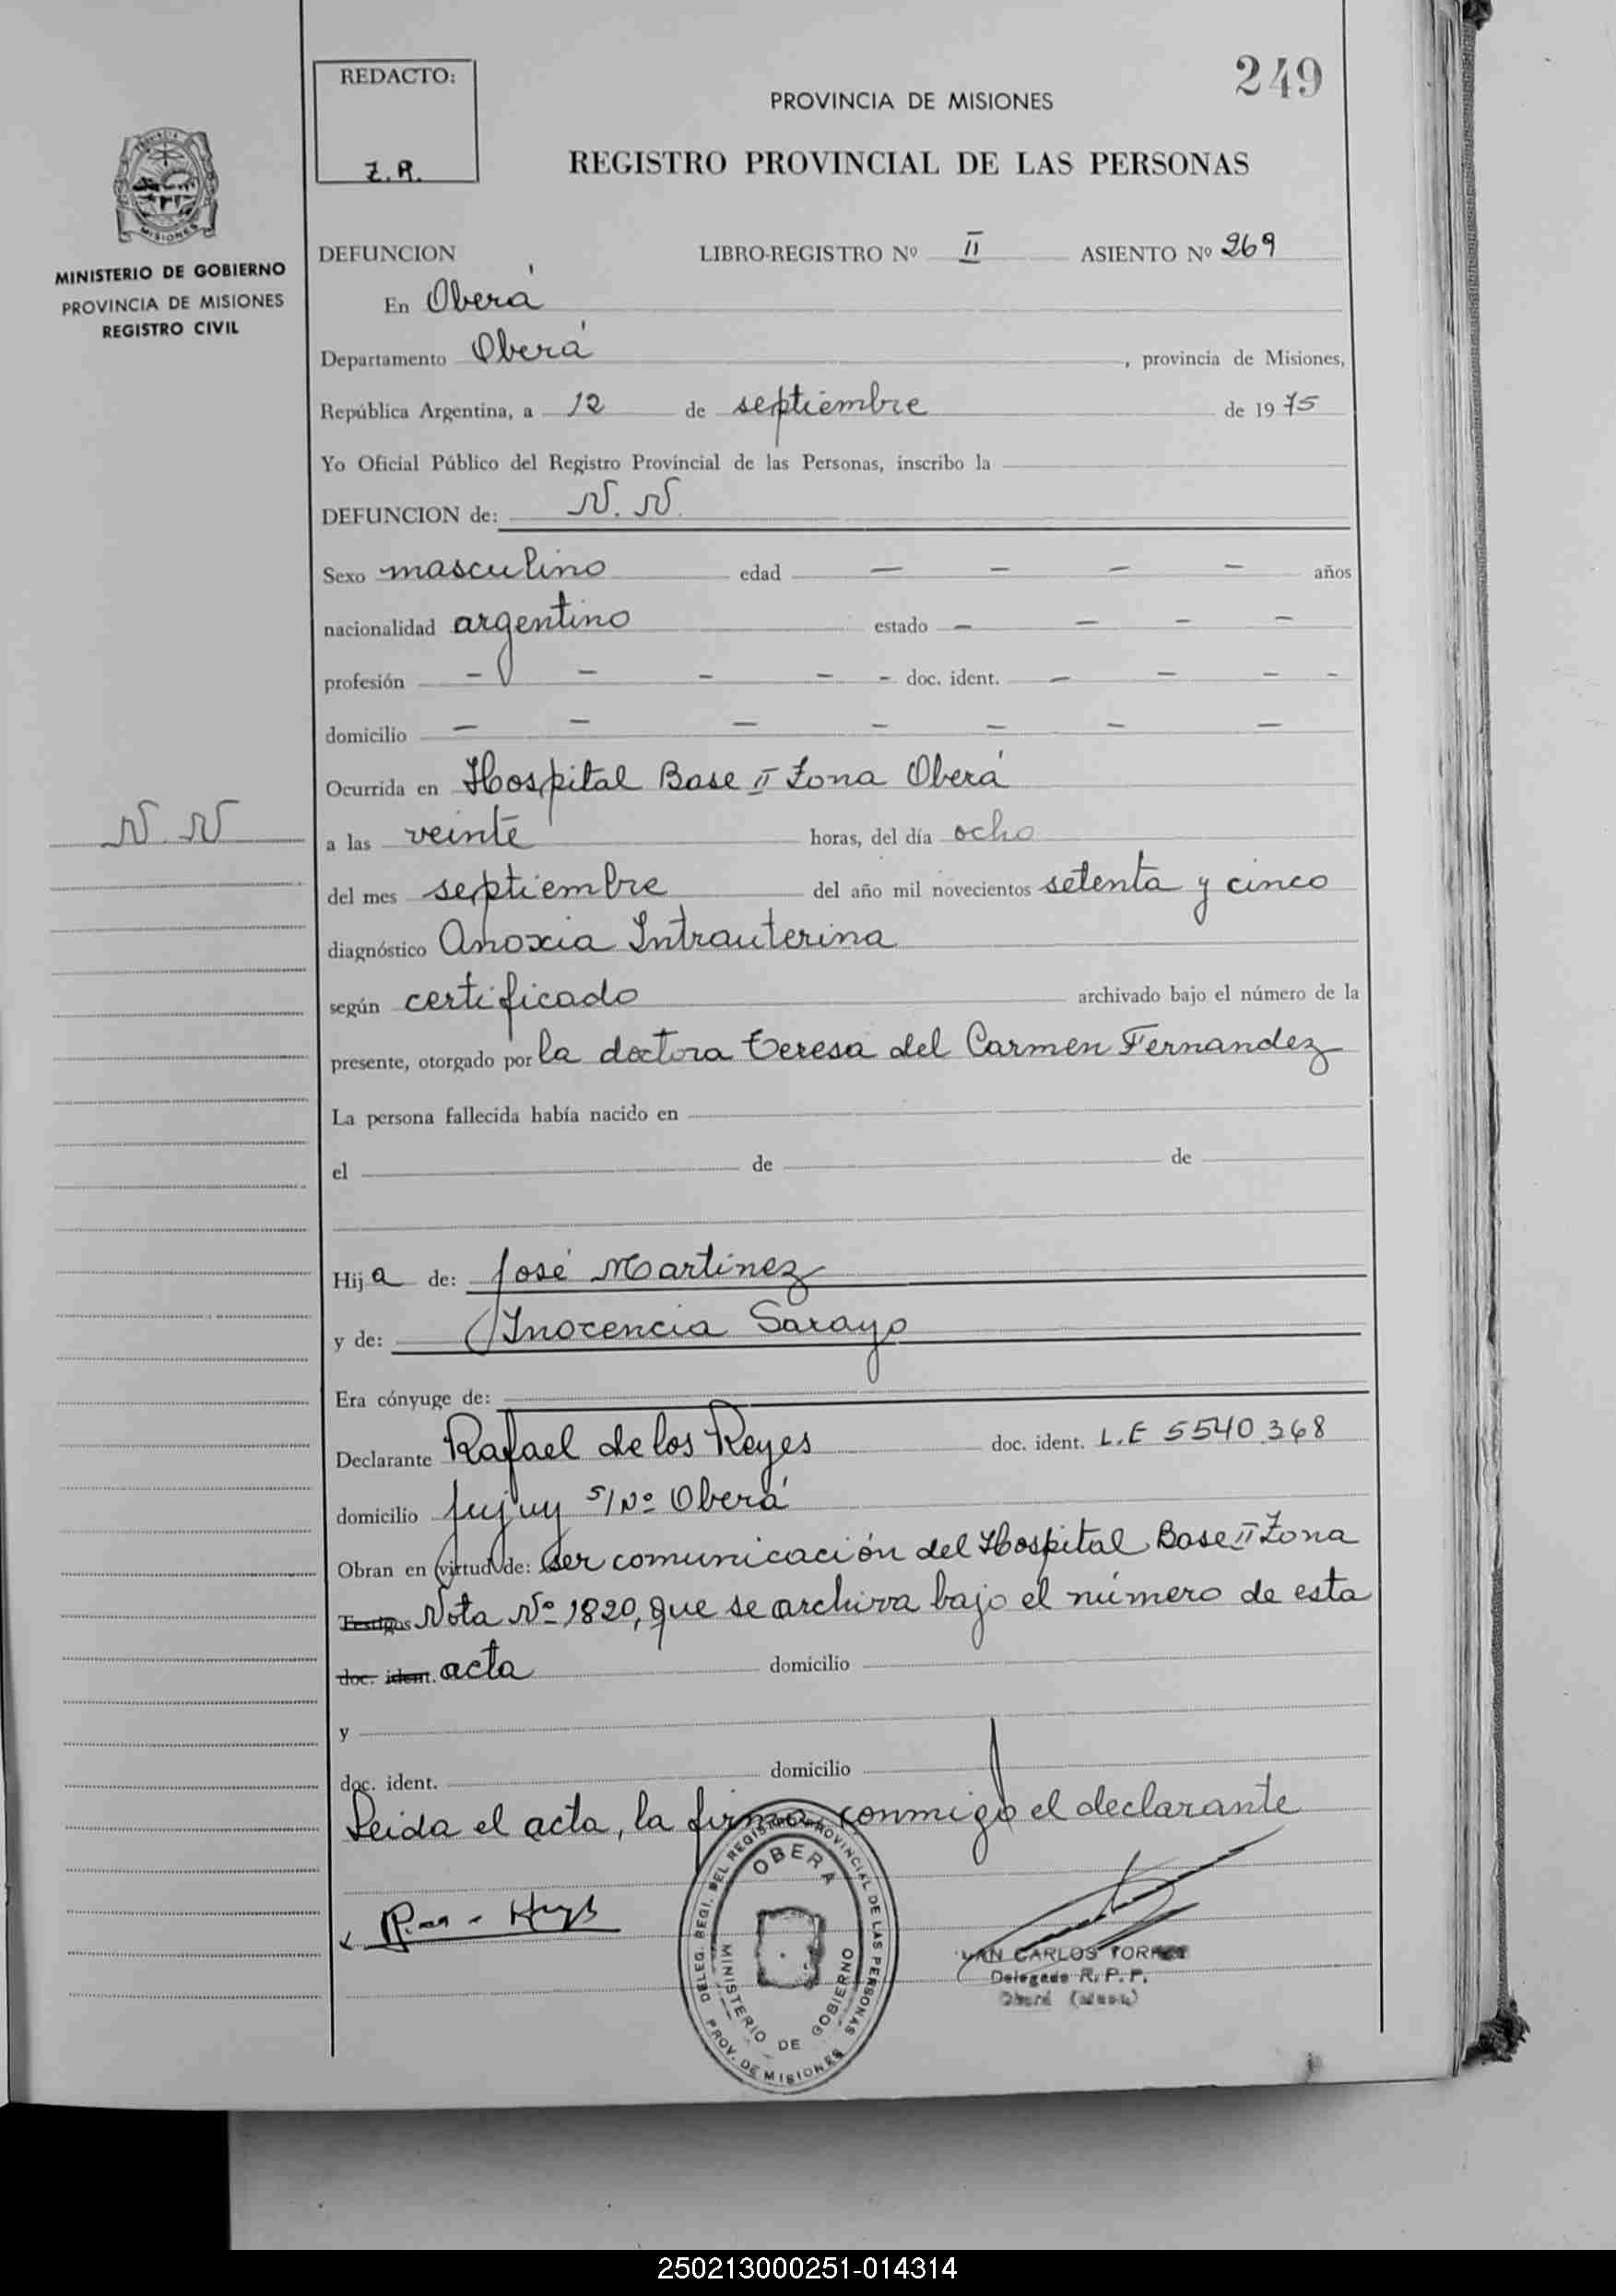 249
REDACTO:
Z. R.
PROVINCIA DE MISIONES
REGISTRO PROVINCIAL DE LAS PERSONAS
MISIONES
MINISTERIO DE GOBIERNO
PROVINCIA DE MISIONES
REGISTRO CIVIL
DEFUNCION LIBRO-REGISTRO Nº II ASIENTO Nº 269
En Oberá
Departamento Oberá, provincia de Misiones,
República Argentina, a 12 de septiembre de 1975
Yo Oficial Público del Registro Provincial de las Personas, inscribo la
DEFUNCION de: N. N.
Sexo masculino edad — — — — años
nacionalidad argentino estado — — — —
profesión — — — — - doc. ident. — — — -
domicilio — — — — — — —
Ocurrida en Hospital Base II Zona Oberá
N. N
a las veinte horas, del día ocho
del mes septiembre del año mil novecientos setenta y cinco
diagnóstico Anoxia Intrauterina
según certificado archivado bajo el número de la
presente, otorgado por la doctora Teresa del Carmen Fernandez
La persona fallecida había nacido en
el de de
Hija de: José Martinez
y de: Inocencia Sarayo
Era cónyuge de:
Declarante Rafael de los Reyes doc. ident. L.E 5540.368
domicilio Jujuy s/Nº Oberá
Obran en virtud de: Ser comunicación del Hospital Base II Zona
Testigos Nota Nº 1820, que se archiva bajo el número de esta
doc. ident. acta domicilio
y
doc. ident. domicilio
Leida el acta, la firma conmigo el declarante
DELEG. REGI. DEL REGISTRO PROVINCIAL DE LAS PERSONAS
OBERÁ
MINISTERIO DE GOBIERNO
PROV. DE MISIONES
CARLOS TORRES
Delegado R. P. P.
Oberá
250213000251-014314